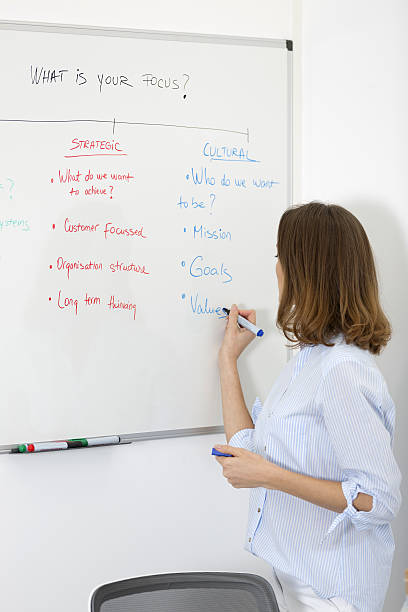 What is your focus?
Strategic
• What do we want
to achieve?
• Customer focussed
• Organisation structure
• Long term thinking
Cultural
• Who do we want
to be?
• Mission
• Goals
• Values
?
ystems